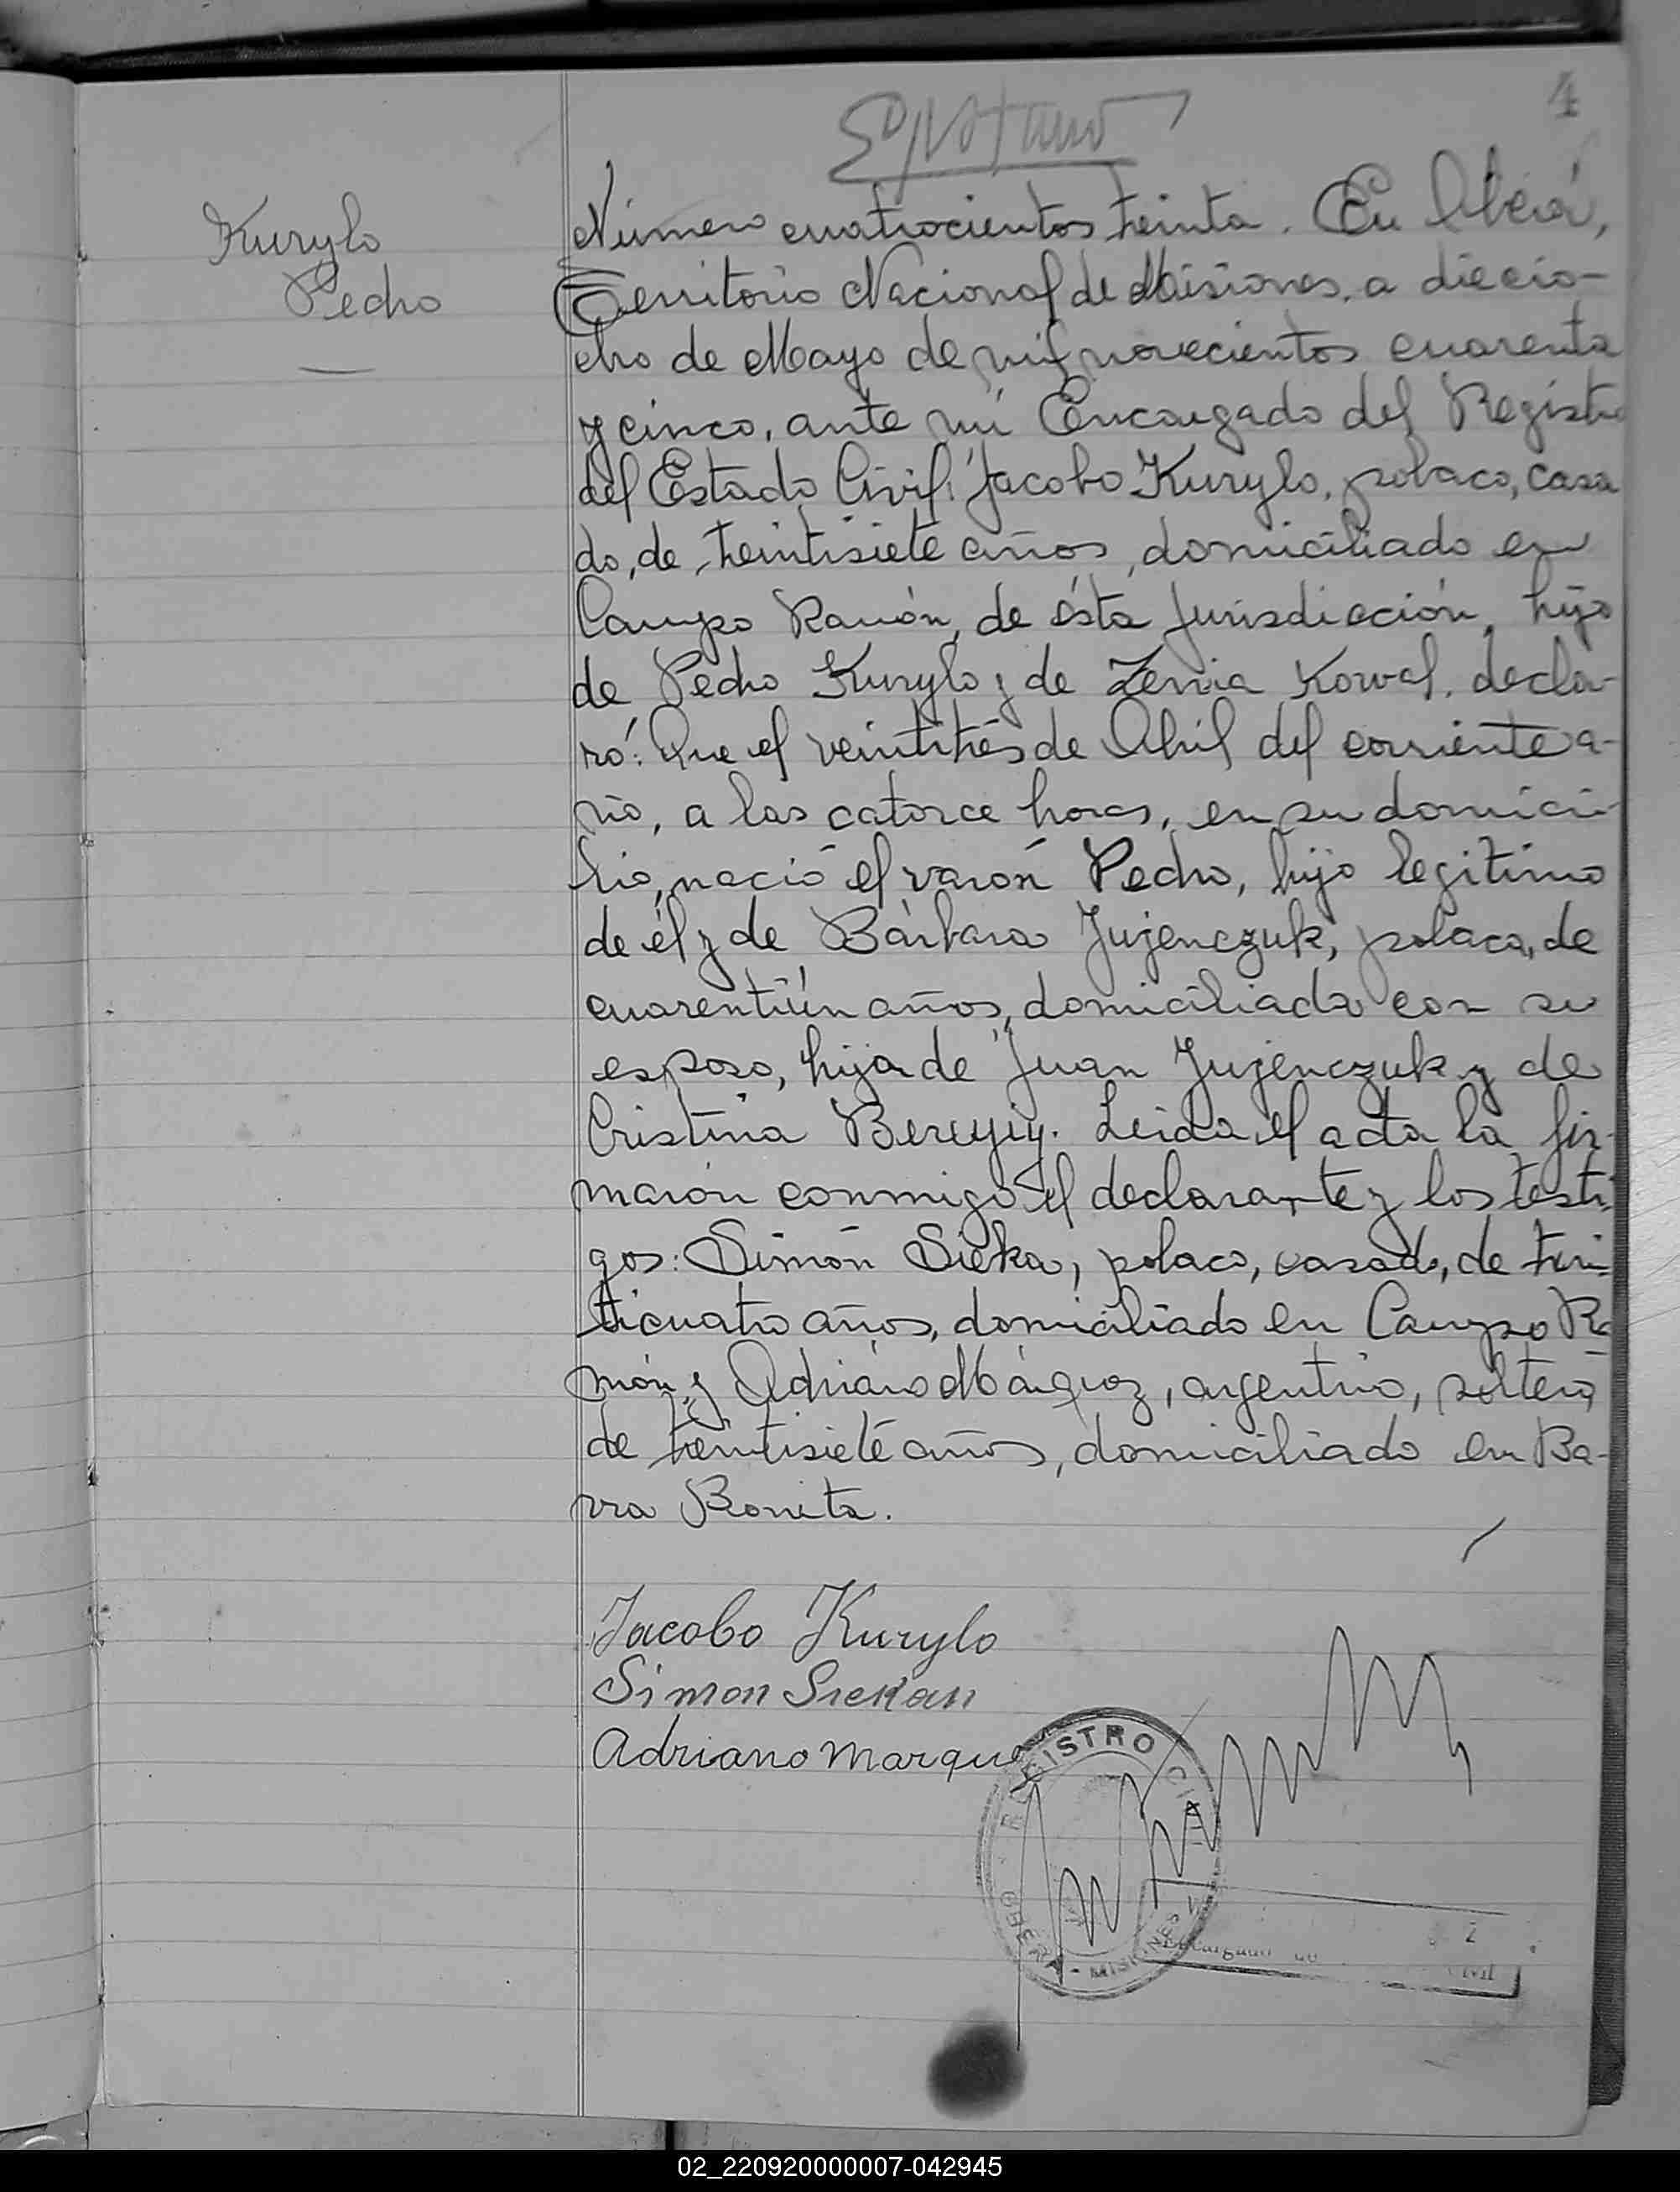 4
Kurylo
Pedro
Número cuatrocientos treinta. En Oberá,
Territorio Nacional de Misiones, a diecio-
cho de Mayo de mil novecientos cuarenta
y cinco, ante mí Encargado del Registro
del Estado Civil: Jacobo Kurylo, polaco, casa
do, de treintisiete años, domiciliado en
Campo Ramón, de ésta Jurisdicción, hijo
de Pedro Kurylo y de Zenia Kowal, decla-
ró: Que el veintitrés de Abril del corriente a-
ño, a las catorce horas, en su domici-
lio, nació el varón Pedro, hijo legítimo
de él y de Bárbara Jujenczuk, polaca, de
cuarentiún años, domiciliada con su
esposo, hija de Juan Jujenczuk y de
Cristina. Leida el acta la fir-
maron conmigo el declarante y los testi-
gos: Simón Sieka, polaco, casado, de trein-
ticuatro años, domiciliado en Campo Ra
món y Adriano Márquez, argentino, soltero,
de treintisiete años, domiciliado en Ba-
rra Bonita.
Jacobo Kurylo
Simon Siekan
Adriano Marquez
REGISTRO CIVIL
OBERA - MISIONES
Encargado
Civil
02_220920000007-042945